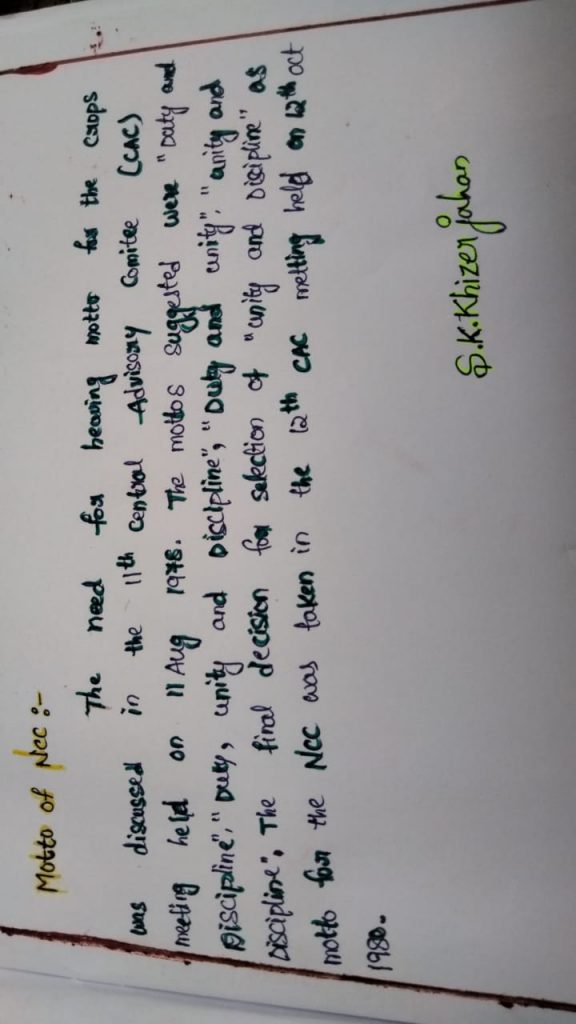 Motto of Ncc :-
The need for heaving motto for the corps
was discussed in the 11th central Advisory Comitee (CAC)
meeting held on 11 Aug 1978. The mottos suggested were "Duty and
Discipline", "Duty, unity and Discipline", "Duty and unity", "unity and
Discipline". The final decision for selection of "unity and Discipline" as
motto for the NCC was taken in the 12th CAC metting held on 12th oct
1980.
S.K.Khizer jahan